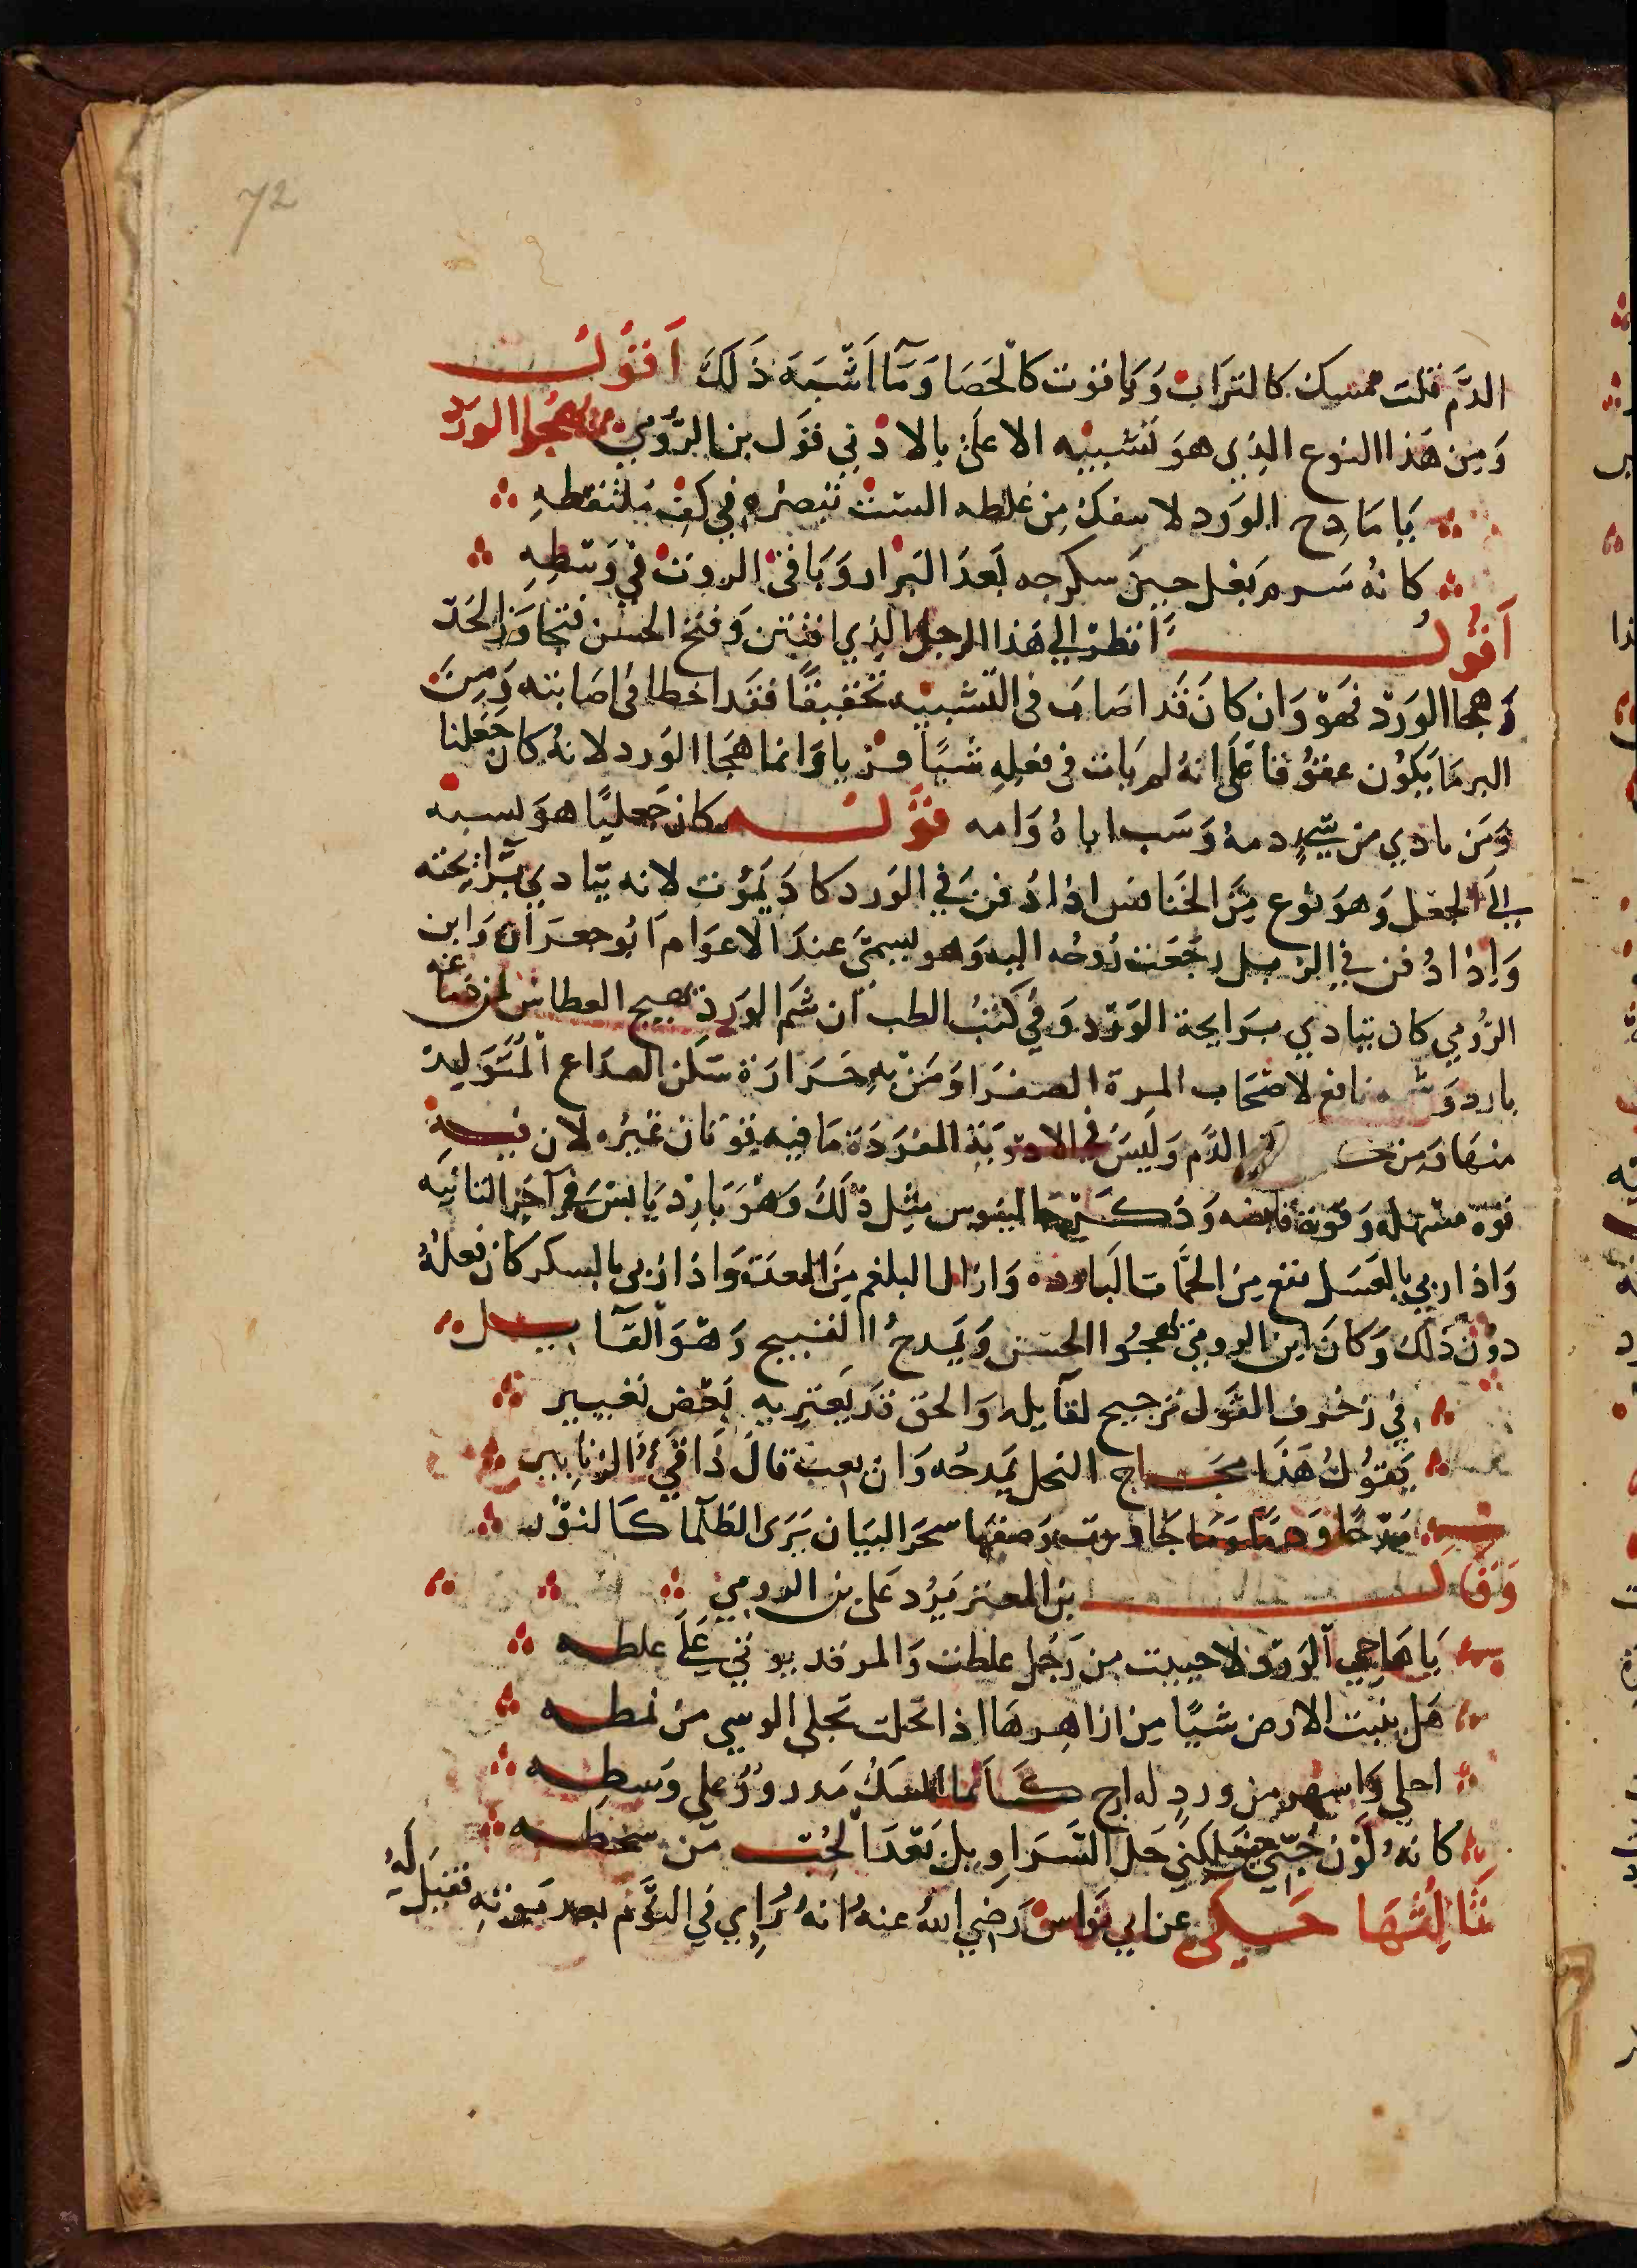 72
الدَّم قلت مسك كالتراب وَيَاقوت كالحَصَا وَمَّا اَشْبَهَ ذَلَكَ اَقوُلُ
وَمِن هَذا النوع الذِي هوَ تشبيه الاعلىَ بالادني قوَل بن الرُّومي يهجُوا الورَد
يَا مَادِح الوَرَد لا سفك مِن غلطه الستَ تبصُره في كفِ مُلتقطهِ
كانهُ سَرم بَغل حينَ سكرجه بَعدَ البَراز وَبَاقىَ الروث في وَسَطِهِ
اَقوُلُ اَنظر الي هَذا الرجل الذِي افتتن وَقبح الحسن فتجاوَز الحَدّ
وَهجا الوَرَد فهَوَ وَان كانَ قَد اصَابَ في التشبيه تحقيقًا فقد اخطا في اصَابته وَمِنَ
البر مَا يَكوُن عقوُقا عَلَى انهُ لم يَات في فعلِهِ شَيًا فريا وَانما هَجَا الوَرد لانهُ كان جَعَلنا
وَمَن بادي من شي دمهُ وَسَب اباهُ وَامه قوَّلهُ كان جَعليًا هوَ نسبة
الي الجعل وَهوَ نوع مِنَ الخنَافس اذا دُفن في الوَرد كادَ يَموُت لانه يتادي برَايحته
وَاِذا دُفن في الزبل رجَعَت رُوحُه اليه وَهو يسمىَ عندَ الاعوَام اَبُو جعرَان وَابن
الرُومي كان يتادي برَايحة الوَرَد وَفي كتبُ الطب ان شم الوَرد يهيج العطاس لمن دمَاغه
بارد وَشمه نافع لاصَحَاب المرة الصفرَا وَمَن بهِ حَرَارَة سَكن الصدَاع المتَوَلد
منهَا وَمِن الدَم وَليَسَ في الادوَيَة المفرَدَة مَا فيه قوَتان غيرُه لان فيهِ
قوَة مسهله وَقوَة قابضه وَذكَرَ جالينوس مثِل ذلَكَ وَهوَ بَارِد يَابسَ في آخر الثانيَه
وَاذا ربي بالعَسَل نفع مِنَ الحَّمَات البَارده وَازال البلغم مِنَ المعدَة وَاذا ربي بالسكر كان فعلهُ
دوُنَ ذَلكَ وَكانَ ابن الرومي يهجُوا الحسَن وَيَمدحُ القبيح وَهوَ القَآيل
في زخرف القوَل ترجيح لقآيله وَالحق قد يَعتريه بَعض تغيير
يَقوُلُ هَذَا مجَاج النحل يَمدحُه وَان يعب قالَ ذَا قيُ الزنابير
مَدحًا وَذمًا وَمَا جَاوزت وَصفهَا سحر البيَان يَرَى الظلَما كَالنوُر
وَقال بن المعتز يَرُد عَلى بن الرومي
يَا هَاجي الوَرَد لا حييت من رَجُل غلطت وَالمر قد يوتي عَلَى غلطه
هَل ينبت الارض شيًا مِن ازاهِرهَا اذا تحلت تجلي الوسي من نمطه
احلي وَاشهر من وردٍ له ارج كَاَنما المسَكُ مَدروُرُ علي وَسطِه
كانهُ لوَن حَل السَّرَاوِيل بَعدَ من سخطه
ثالِثهَا حَكي عن ابي نوَاس رَضي اللهُ عنهُ انهُ رُاي في النوَّم بعد مَوتهِ فقيَل لَهُ